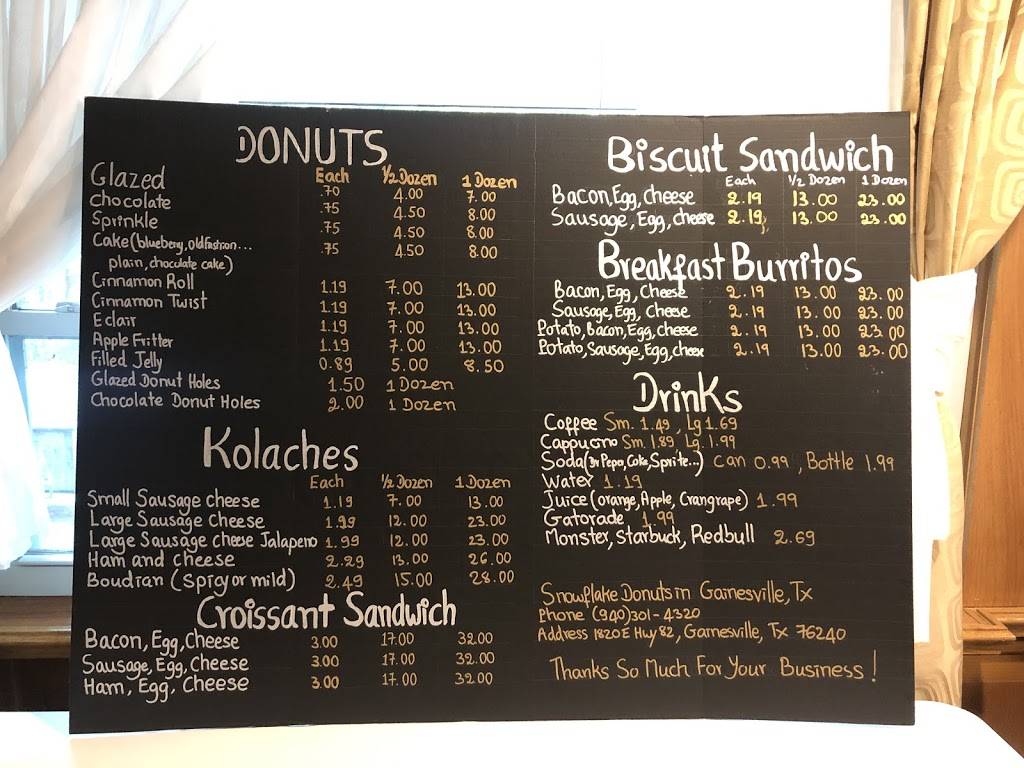 DONUTS
Each ½ Dozen 1 Dozen
Glazed .70 4.00 7.00
Chocolate .75 4.50 8.00
Sprinkle .75 4.50 8.00
Cake (blueberry, oldfashion... .75 4.50 8.00
plain, chocolate cake)
Cinnamon Roll 1.19 7.00 13.00
Cinnamon Twist 1.19 7.00 13.00
Eclair 1.19 7.00 13.00
Apple Fritter 1.19 7.00 13.00
Filled Jelly 0.89 5.00 8.50
Glazed Donut Holes 1.50 1 Dozen
Chocolate Donut Holes 2.00 1 Dozen
Kolaches
Each ½ Dozen 1 Dozen
Small Sausage cheese 1.19 7.00 13.00
Large Sausage Cheese 1.99 12.00 23.00
Large Sausage cheese Jalapeno 1.99 12.00 23.00
Ham and cheese 2.29 13.00 26.00
Boudian (Spicy or mild) 2.49 15.00 28.00
Croissant Sandwich
Bacon, Egg, Cheese 3.00 17.00 32.00
Sausage, Egg, Cheese 3.00 17.00 32.00
Ham, Egg, Cheese 3.00 17.00 32.00
Biscuit Sandwich
Each ½ Dozen 1 Dozen
Bacon, Egg, cheese 2.19 13.00 23.00
Sausage, Egg, cheese 2.19 13.00 23.00
Breakfast Burritos
Bacon, Egg, Cheese 2.19 13.00 23.00
Sausage, Egg, Cheese 2.19 13.00 23.00
Potato, Bacon, Egg, cheese 2.19 13.00 23.00
Potato, Sausage, Egg, cheese 2.19 13.00 23.00
Drinks
Coffee Sm. 1.49, Lg 1.69
Cappucino Sm 1.89, Lg. 1.99
Soda (Dr Peper, Coke, Sprite...) Can 0.99, Bottle 1.99
Water 1.19
Juice (orange, Apple, Crangrape) 1.99
Gatorade 1.99
Monster, Starbuck, Redbull 2.69
Snowflake Donuts in Gainesville, Tx
Phone (940)301-4320
Address 1820 E Hwy 82, Gainesville, Tx 76240
Thanks So Much For Your Business!